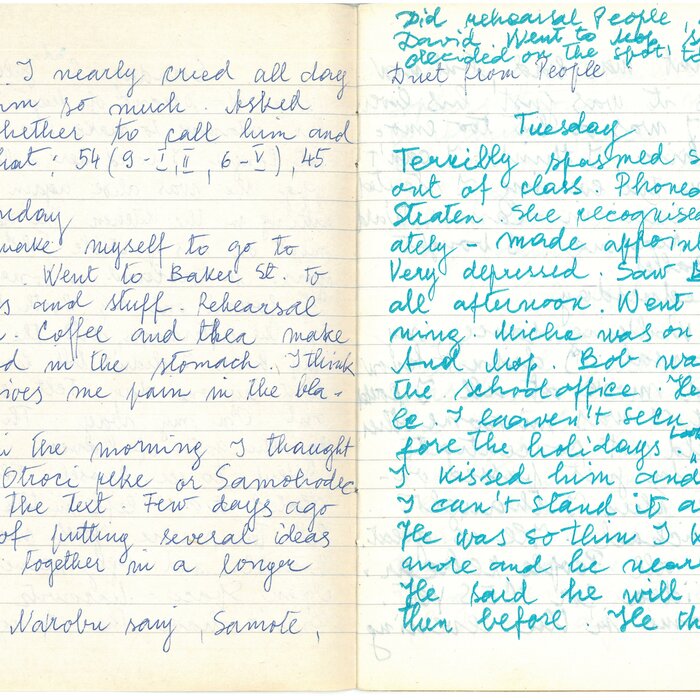 . I nearly cried all day
so much. Asked
whether to call him and
hat: 54 (9-I,II, 6-V), 45
make myself to go to
. Went to Baker St. to
s and stuff. Rehearsal
. Coffee and thea make
d in the stomach. I think
ives me pain in the bla-
in the morning I thought
Otroci reke or Samohodec.
the text. Few days ago
of putting several ideas
together in a longer
Narobu sanj, Samote,
Did rehearsal People,
David. Went to Mop, s
decided on the spot, to
Duet from People
Tuesday
Terribly spasmed s
out of class. Phoned
Straten. She recognised
ately - made appoint
Very depressed. Saw B
all afternoon. Went
ning. Micha was on
And Mop. Bob wa
the school office. He
le I haven't seen
fore the holidays.
I kissed him and
I can't stand it a
He was so thin I
more and he near
He said he will
then before. He th